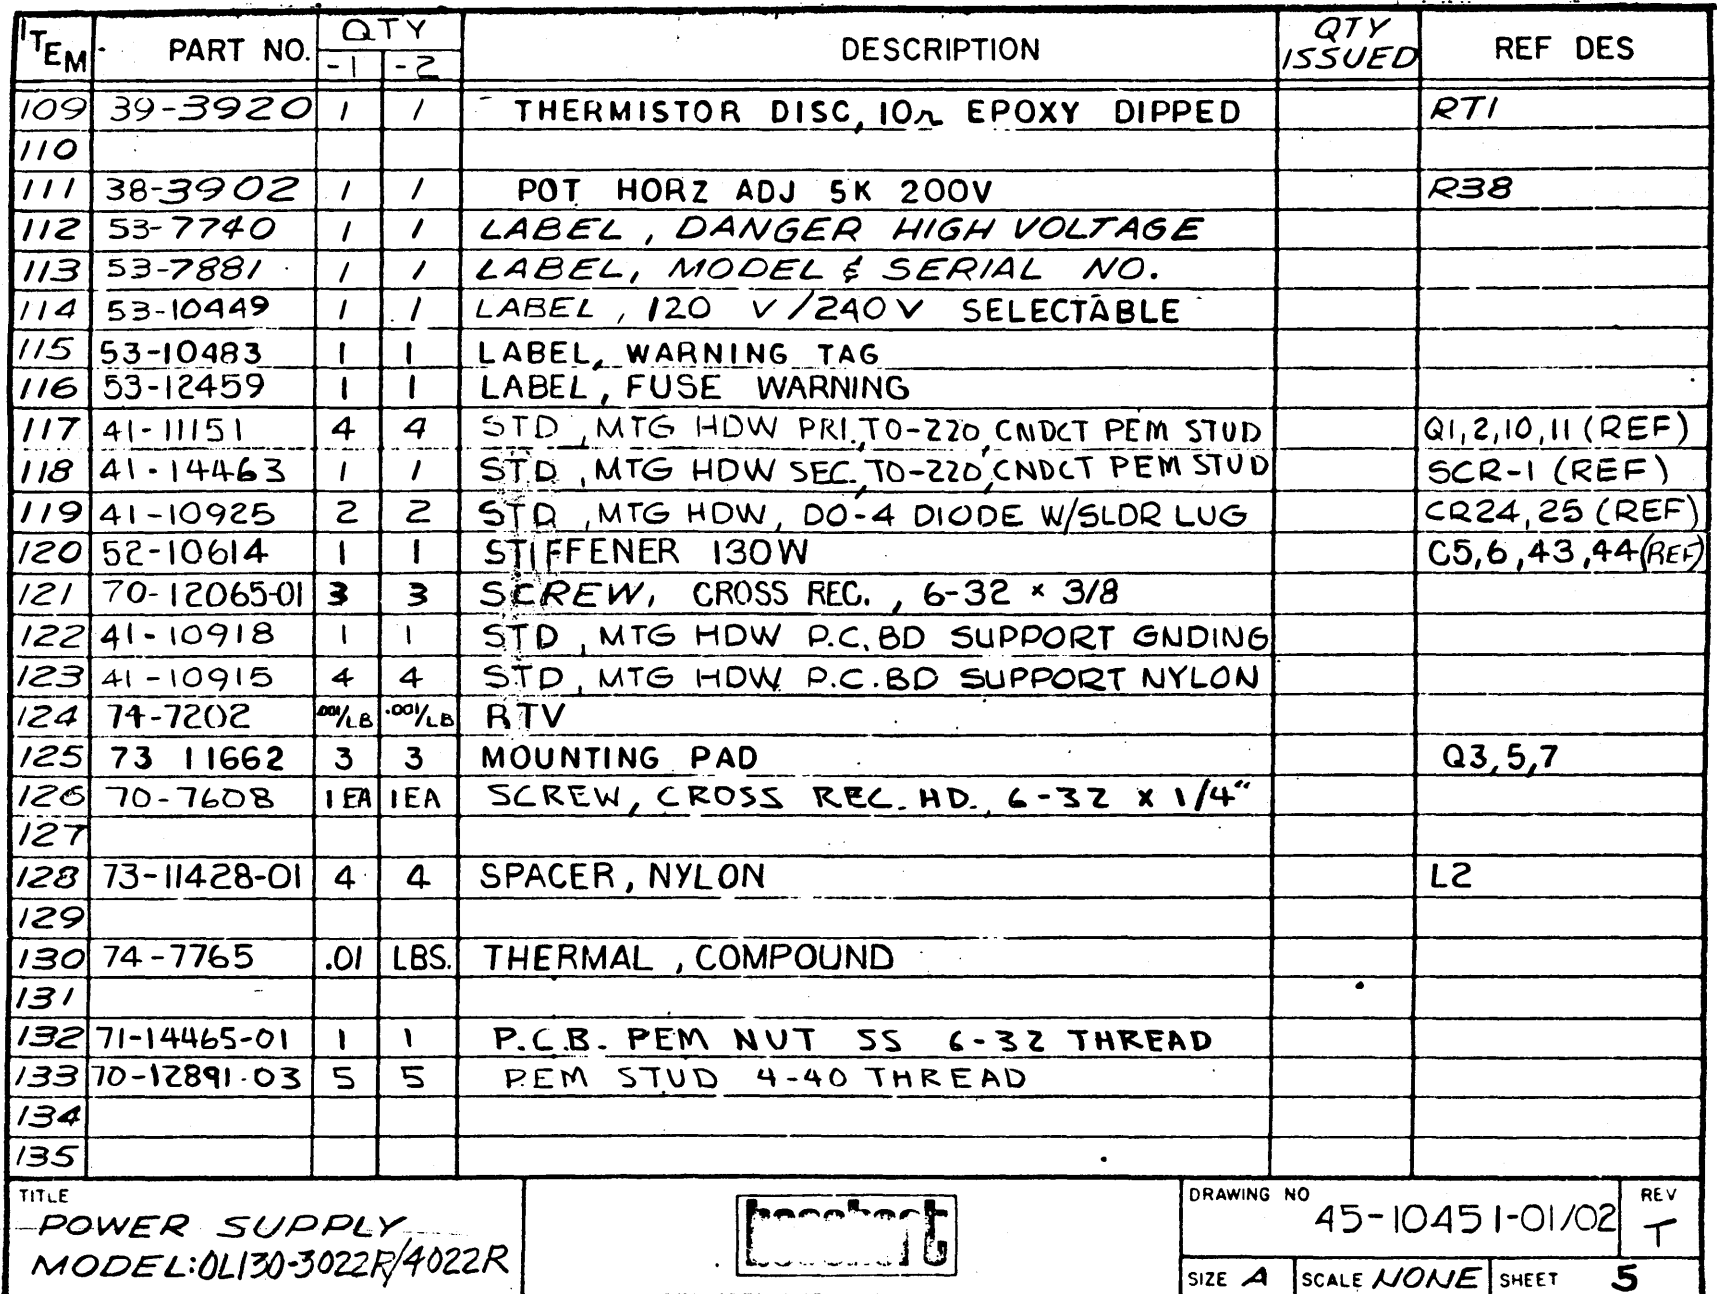 ITEM PART NO. QTY DESCRIPTION QTY ISSUED REF DES
-1 -2
109 39-3920 1 1 THERMISTOR DISC, 10Ω EPOXY DIPPED RT1
110
111 38-3902 1 1 POT HORZ ADJ 5K 200V R38
112 53-7740 1 1 LABEL, DANGER HIGH VOLTAGE
113 53-7881 1 1 LABEL, MODEL & SERIAL NO.
114 53-10449 1 1 LABEL, 120 V/240V SELECTABLE
115 53-10483 1 1 LABEL, WARNING TAG
116 53-12459 1 1 LABEL, FUSE WARNING
117 41-11151 4 4 STD, MTG HDW PRI., TO-220, CNDCT PEM STUD Q1,2,10,11 (REF)
118 41-14463 1 1 STD, MTG HDW SEC., TO-220, CNDCT PEM STUD SCR-1 (REF)
119 41-10925 2 2 STD, MTG HDW, DO-4 DIODE W/SLDR LUG CR24,25 (REF)
120 52-10614 1 1 STIFFENER 130W C5,6,43,44 (REF)
121 70-12065-01 3 3 SCREW, CROSS REC., 6-32 x 3/8
122 41-10918 1 1 STD, MTG HDW P.C. BD SUPPORT GNDING
123 41-10915 4 4 STD, MTG HDW P.C. BD SUPPORT NYLON
124 74-7202 .001/LB .001/LB RTV
125 73 11662 3 3 MOUNTING PAD Q3,5,7
126 70-7608 1EA 1EA SCREW, CROSS REC. HD., 6-32 x 1/4"
127
128 73-11428-01 4 4 SPACER, NYLON L2
129
130 74-7765 .01 LBS. THERMAL, COMPOUND
131
132 71-14465-01 1 1 P.C.B. PEM NUT SS 6-32 THREAD
133 70-12891-03 5 5 PEM STUD 4-40 THREAD
134
135
TITLE
POWER SUPPLY
MODEL: OL130-3022R/4022R
DRAWING NO 45-10451-01/02 REV T
SIZE A SCALE NONE SHEET 5